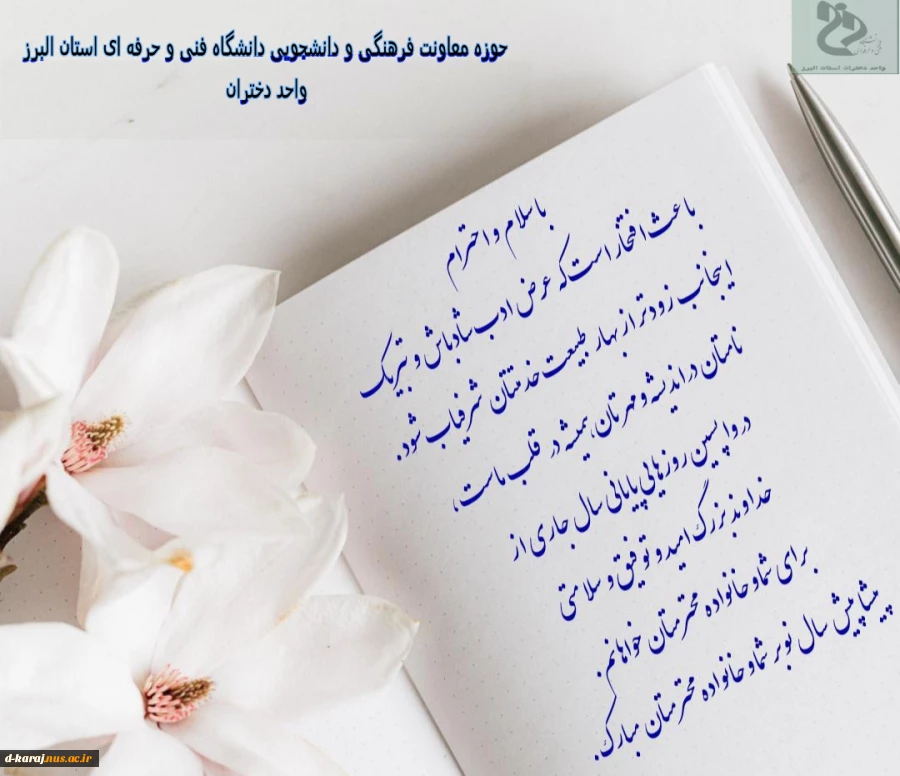 حوزه معاونت فرهنگی و دانشجویی دانشگاه فنی و حرفه ای استان البرز
واحد دختران
واحد دختران استان البرز
با سلام و احترام
باعث افتخار است که عرض ادب شادباش و تبریک
اینجانب زودتر از بهار طبیعت خدمتتان شرفیاب شود.
نامتان در اندیشه و مهرتان، همیشه در قلب ماست،
در واپسین روزهایی پایانی سال جاری از
خداوند بزرگ امید و توفیق و سلامتی
برای شما و خانواده محترمتان خواهانم.
پیشاپیش سال نو بر شما و خانواده محترمتان مبارک.
d-karaj.nus.ac.ir